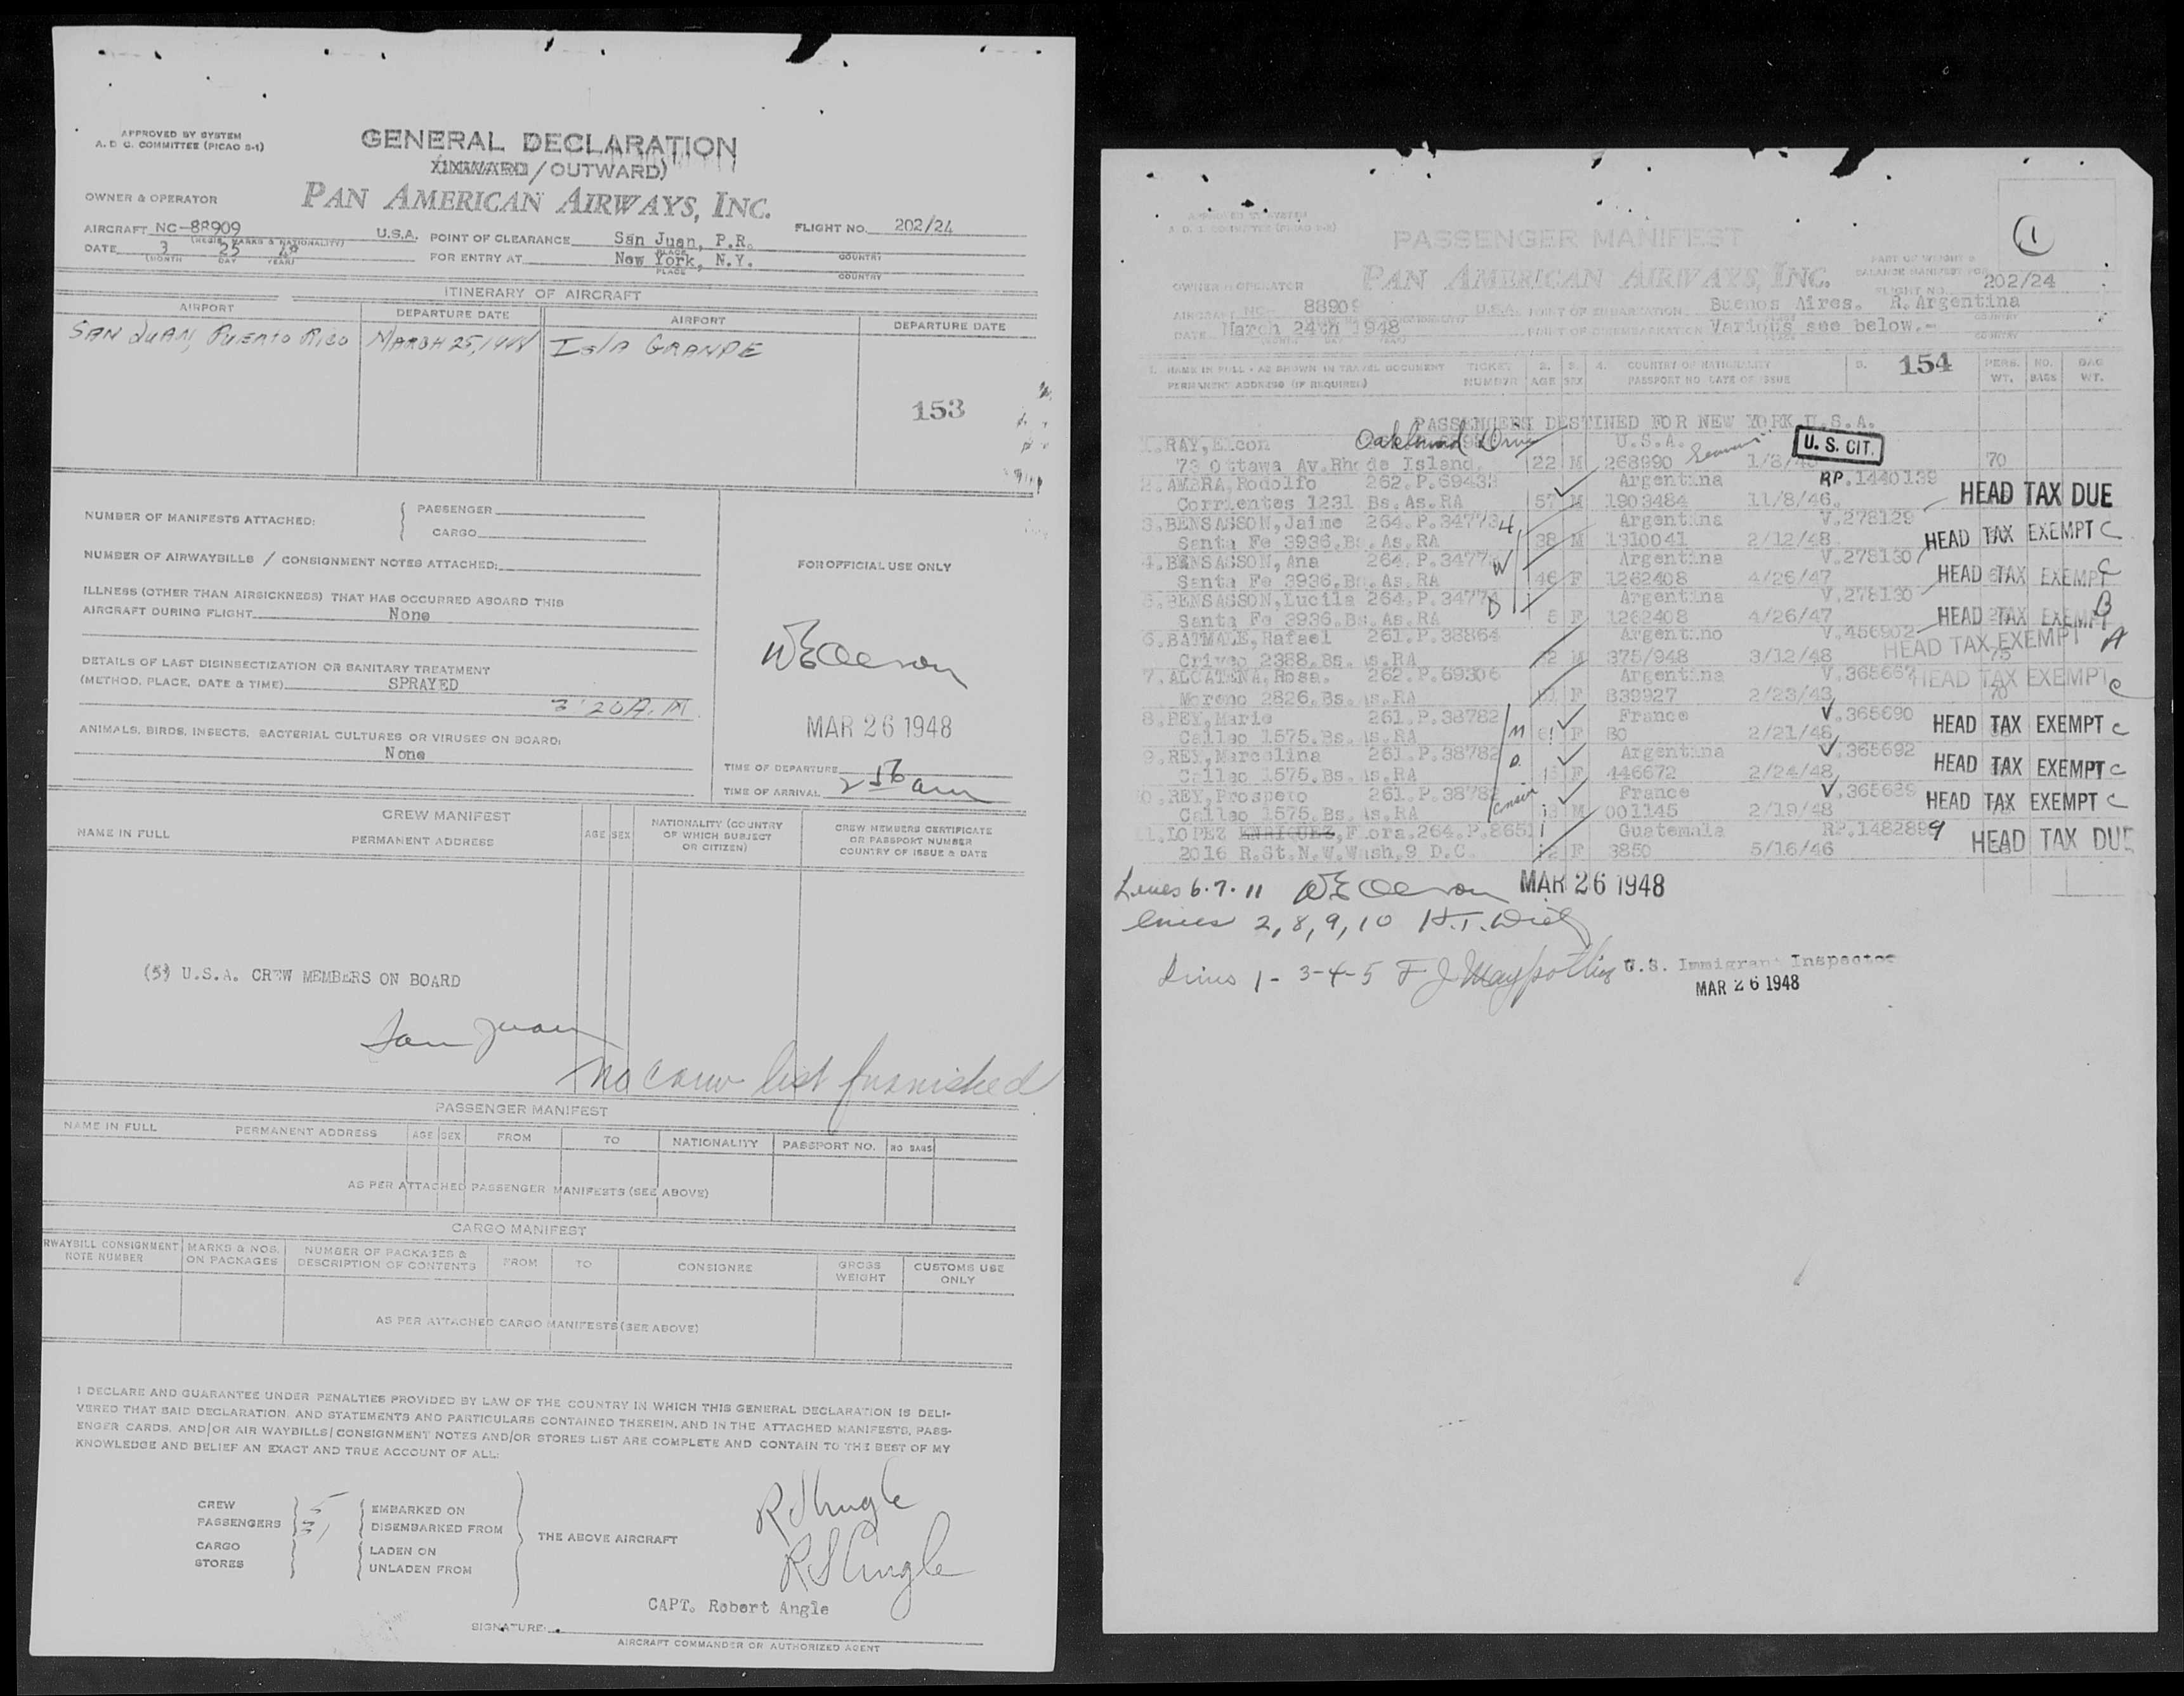 APPROVED BY SYSTEM
A. D. C. COMMITTEE (PICAO S-1)
GENERAL DECLARATION
(INWARD / OUTWARD)
OWNER & OPERATOR
PAN AMERICAN AIRWAYS, INC.
AIRCRAFT NC-88909 U.S.A.
(REGIS. MARKS & NATIONALITY)
POINT OF CLEARANCE San Juan, P.R.
PLACE COUNTRY
FLIGHT NO. 202/24
DATE 3 25 48
(MONTH DAY YEAR)
FOR ENTRY AT New York, N.Y.
PLACE COUNTRY
ITINERARY OF AIRCRAFT
AIRPORT DEPARTURE DATE AIRPORT DEPARTURE DATE
SAN JUAN, PUERTO RICO MARCH 25, 1948 ISLA GRANDE
153
NUMBER OF MANIFESTS ATTACHED:
PASSENGER
CARGO
NUMBER OF AIRWAYBILLS / CONSIGNMENT NOTES ATTACHED:
FOR OFFICIAL USE ONLY
ILLNESS (OTHER THAN AIRSICKNESS) THAT HAS OCCURRED ABOARD THIS
AIRCRAFT DURING FLIGHT None
DETAILS OF LAST DISINSECTIZATION OR SANITARY TREATMENT
(METHOD, PLACE, DATE & TIME) SPRAYED
3:20 A.M.
MAR 26 1948
ANIMALS, BIRDS, INSECTS, BACTERIAL CULTURES OR VIRUSES ON BOARD:
None
TIME OF DEPARTURE
TIME OF ARRIVAL 2 56 am
CREW MANIFEST
NAME IN FULL PERMANENT ADDRESS AGE SEX NATIONALITY (COUNTRY OF WHICH SUBJECT OR CITIZEN) CREW MEMBERS CERTIFICATE OR PASSPORT NUMBER COUNTRY OF ISSUE & DATE
(5) U.S.A. CREW MEMBERS ON BOARD
San Juan
No crew list furnished
PASSENGER MANIFEST
NAME IN FULL PERMANENT ADDRESS AGE SEX FROM TO NATIONALITY PASSPORT NO. NO BAGS
AS PER ATTACHED PASSENGER MANIFESTS (SEE ABOVE)
CARGO MANIFEST
RWAYBILL CONSIGNMENT NOTE NUMBER MARKS & NOS. ON PACKAGES NUMBER OF PACKAGES & DESCRIPTION OF CONTENTS FROM TO CONSIGNEE GROSS WEIGHT CUSTOMS USE ONLY
AS PER ATTACHED CARGO MANIFESTS (SEE ABOVE)
I DECLARE AND GUARANTEE UNDER PENALTIES PROVIDED BY LAW OF THE COUNTRY IN WHICH THIS GENERAL DECLARATION IS DELI-
VERED THAT SAID DECLARATION, AND STATEMENTS AND PARTICULARS CONTAINED THEREIN, AND IN THE ATTACHED MANIFESTS, PASS-
ENGER CARDS, AND/OR AIR WAYBILLS/CONSIGNMENT NOTES AND/OR STORES LIST ARE COMPLETE AND CONTAIN TO THE BEST OF MY
KNOWLEDGE AND BELIEF AN EXACT AND TRUE ACCOUNT OF ALL:
CREW
PASSENGERS
CARGO
STORES
EMBARKED ON
DISEMBARKED FROM
LADEN ON
UNLADEN FROM
THE ABOVE AIRCRAFT
CAPT. Robert Angle
SIGNATURE:
AIRCRAFT COMMANDER OR AUTHORIZED AGENT
1
APPROVED BY SYSTEM
PASSENGER MANIFEST
PART OF WEIGHT & BALANCE MANIFEST FOR
OWNER & OPERATOR
PAN AMERICAN AIRWAYS, INC.
FLIGHT NO. 202/24
AIRCRAFT NC- 88909 U.S.A. POINT OF EMBARKATION Buenos Aires. R. Argentina
DATE March 24th 1948 POINT OF DISEMBARKATION Various see below.-
MONTH DAY YEAR PLACE COUNTRY
1. NAME IN FULL - AS SHOWN IN TRAVEL DOCUMENT TICKET 2. 3. 4. COUNTRY OF NATIONALITY 5. 154 PERS. NO. BAG
PERMANENT ADDRESS (IF REQUIRED) NUMBER AGE SEX PASSPORT NO DATE OF ISSUE WT. BAGS WT.
PASSENGERS DESTINED FOR NEW YORK U.S.A.
1.RAY, Elcon Oakland U.S.A. U. S. CIT.
73 Ottawa Av.Rhode Island. 22 M 268990 70
2.AMBRA, Rodolfo Argentina RP.1440139
Corrientes 1231 Bs.As.RA 57 M 1903484 11/8/46. HEAD TAX DUE
3.BENSASSON, Jaime 264.P.34773 4 Argentina V.278129
Santa Fe 3936.Bs.As.RA 38 M 1310041 2/12/48 HEAD TAX EXEMPT C
4.BENSASSON, Ana W Argentina V.278130
Santa Fe 3936.Bs.As.RA F 1262408 4/26/47 HEAD TAX EXEMPT C
5.BENSASSON, Lucila D Argentina V.278130
Santa Fe 3936.Bs.As.RA 5 F 1262408 4/26/47 HEAD TAX EXEMPT B
6.BATMALE, Rafael 261.P.38864 Argentino V.456902
2388.Bs.As.RA M 375/948 3/12/48 HEAD TAX EXEMPT A
7.ALCATENA, Rosa. 262.P.69306 Argentina
Moreno 2826.Bs.As.RA F 839927 HEAD TAX EXEMPT C
8.REY, Maria 261.P.38782 M France V.365690
Callao 1575.Bs.As.RA F 80 2/21/48 HEAD TAX EXEMPT C
9.REY, Marcelina 261.P.38782 D. Argentina V.365692
Callao 1575.Bs.As.RA F 446672 2/24/48 HEAD TAX EXEMPT C
0.REY, Prospero France
Callao 1575.Bs.As.RA M 001145 2/19/48 HEAD TAX EXEMPT C
1.LOPEZ ENRIQUEZ, Flora.264.P.8651 Guatemala RP.1482899
2016 R.St.N.W.Wash.9 D.C. F 3850 5/16/46 HEAD TAX DUE
Lines 6-7-11 MAR 26 1948
lines 2, 8, 9, 10
Lines 1- 3-4-5 U.S. Immigrant Inspector
MAR 26 1948